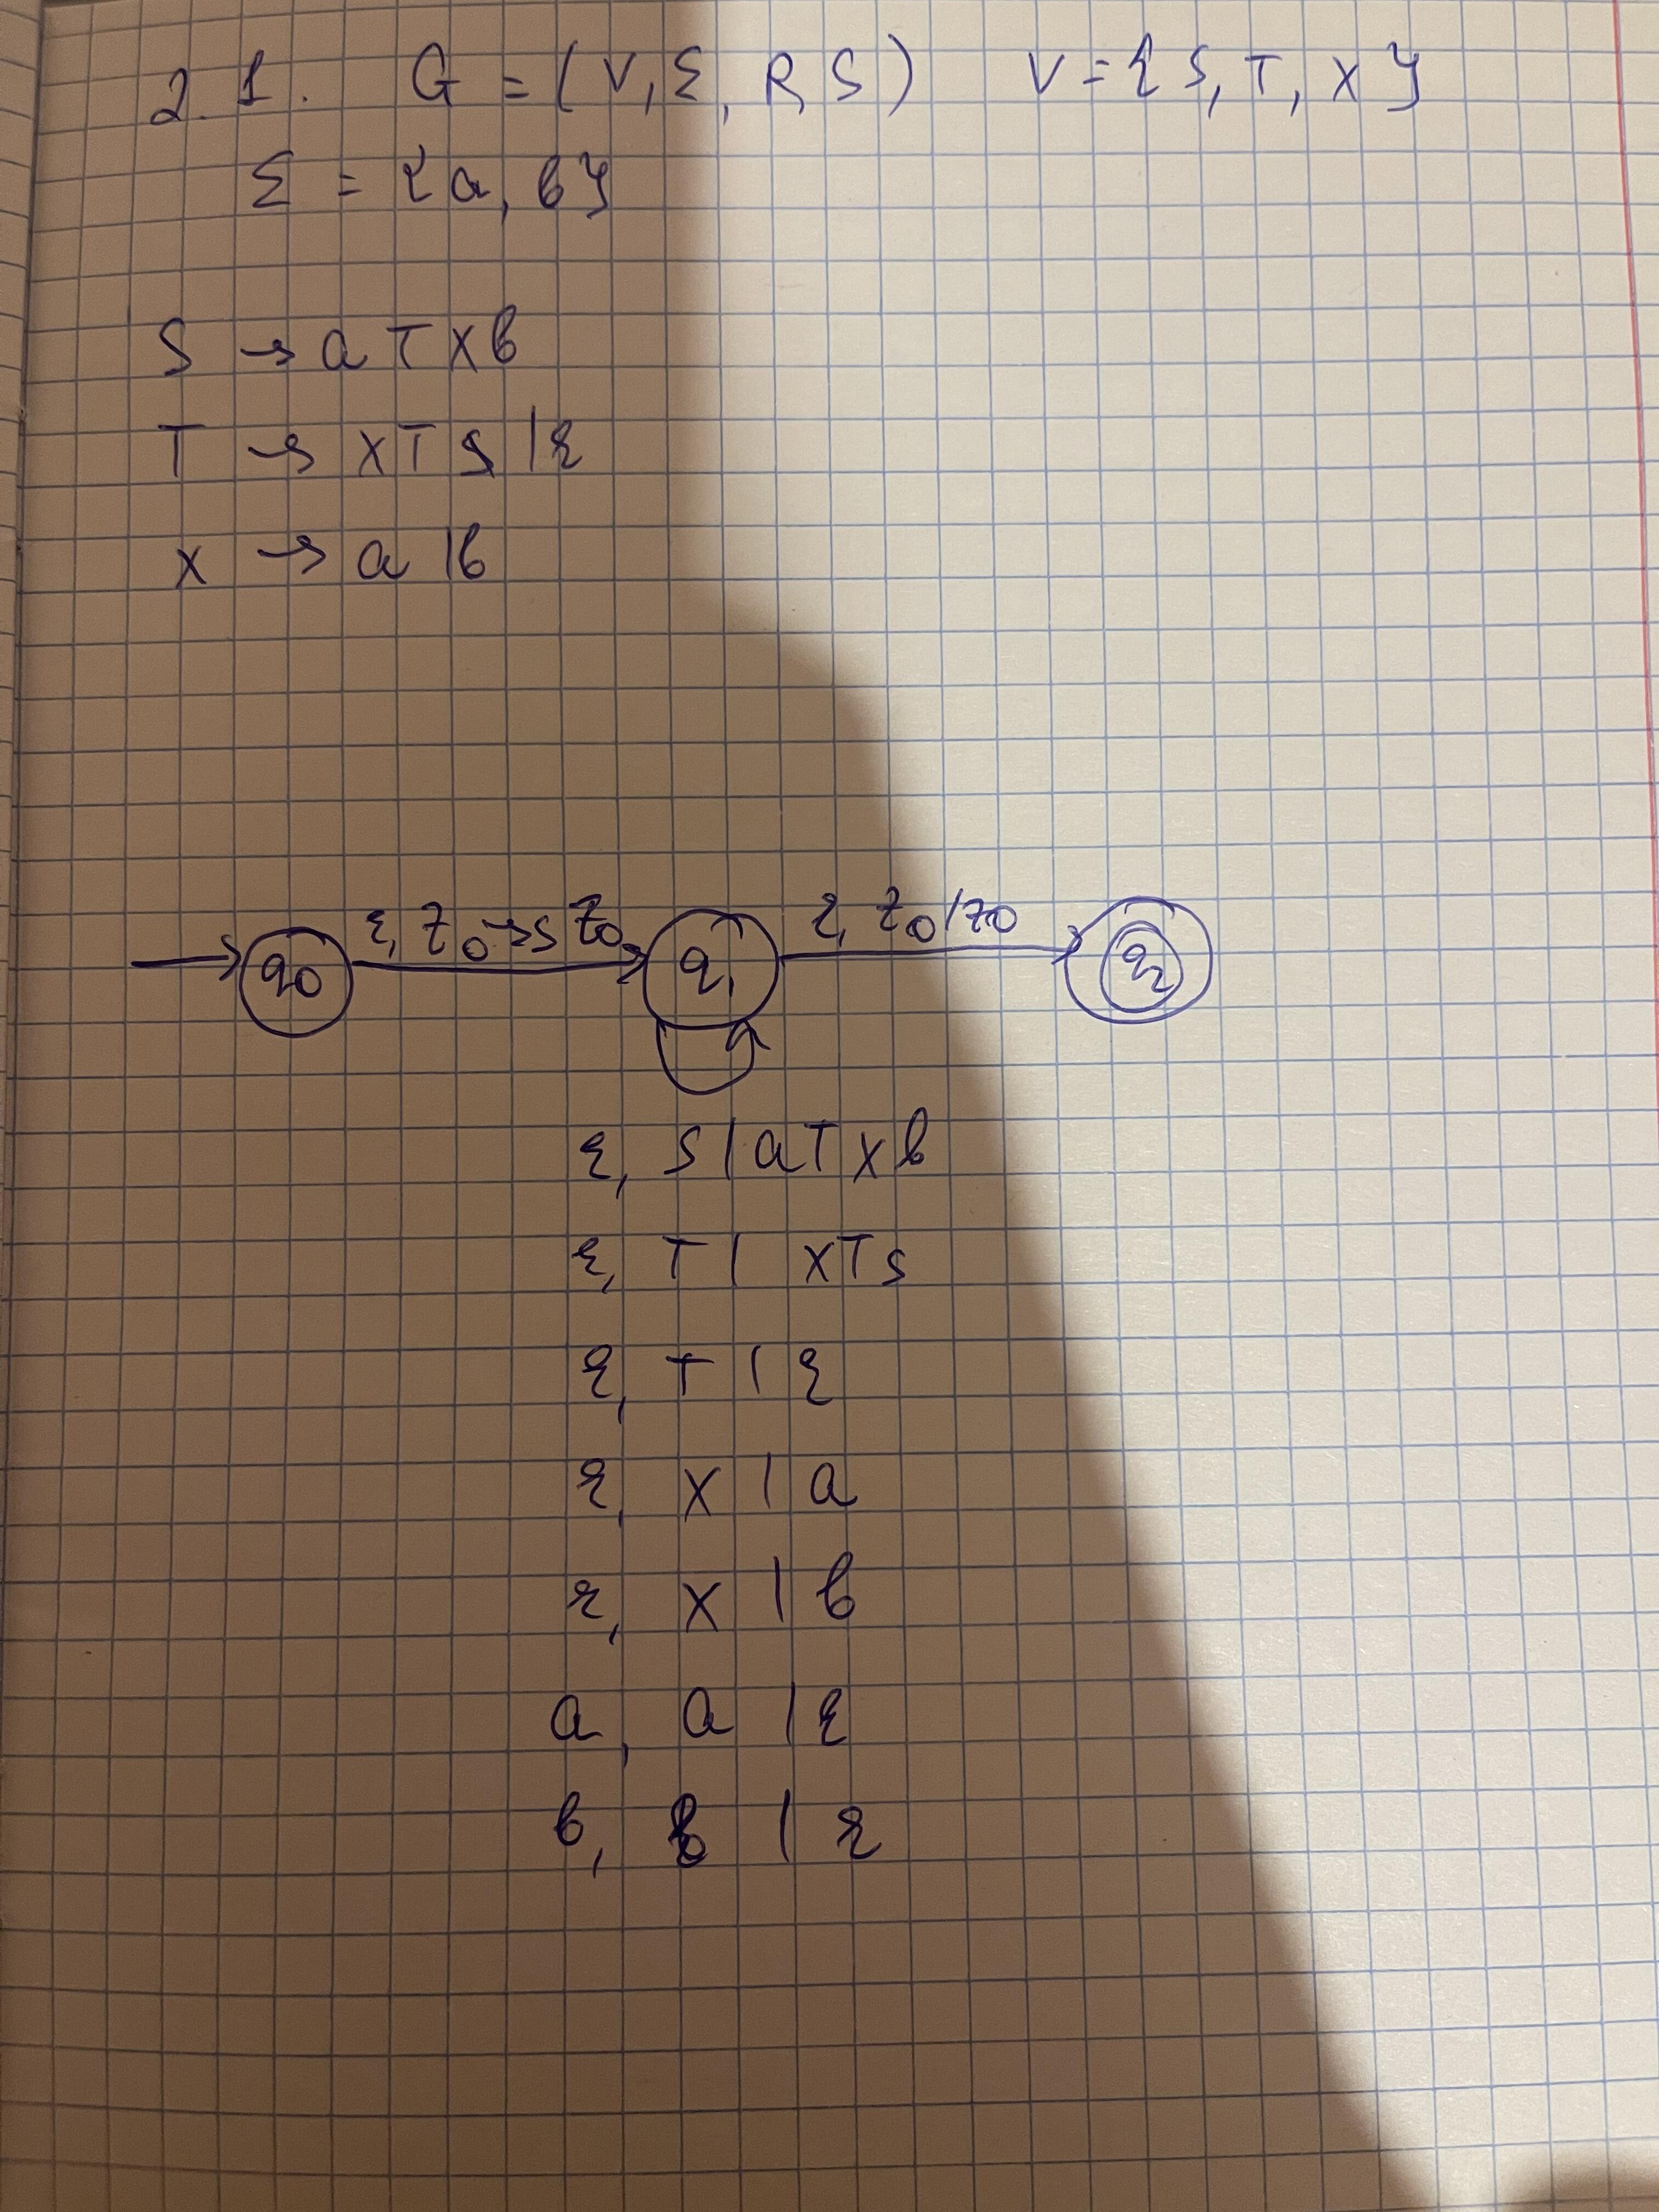 2.1. G = (V, Σ, R, S) V = {S, T, X}
Σ = {a, b}
S → aTXb
T → XTS | ε
X → a | b
q₀
ε, z₀ → Sz₀
q₁
ε, z₀/z₀
q₂
ε, S / aTXb
ε, T / XTS
ε, T / ε
ε, X / a
ε, X / b
a, a / ε
b, b / ε